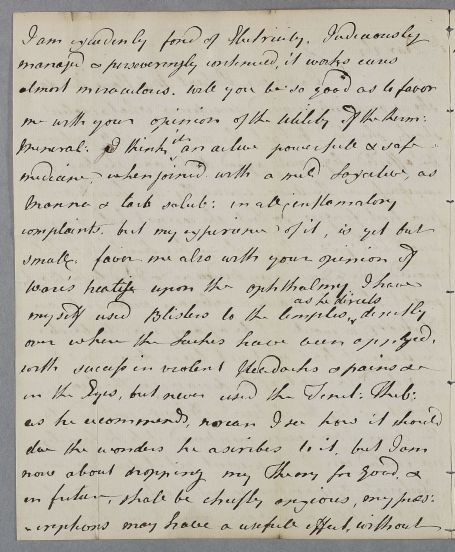 I am exceedingly fond of Electricity. Judiciously
managed & perseveringly continued, it works cures
almost miraculous. will you be so good as to favor
me with your opinion of the utility of the Kerm:
Mineral: I think it is an active powerfull & safe
medicine, when joined with a mild laxative, as
Manna & tart solub: in all inflamatory
complaints. but my experience of it, is yet but
small. favor me also with your opinion of
Ware's treatise upon the ophthalmy. I have
myself used Blisters to the temples, as he directs directly
over where the leeches have been applyed,
with success in violent Headachs & pains &c
in the Eyes, but never used the Tinct: Theb:
as he recommends, nor can I see how it should
doe the wonders he ascribes to it, but I am
now about dropping my Theory for good, &
in future, shall be chiefly anxious, my pres:
-criptions may have a usefull effect, without